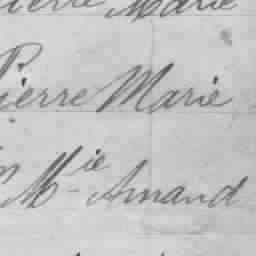 Pierre Marie
Pierre Marie
Mie Amand